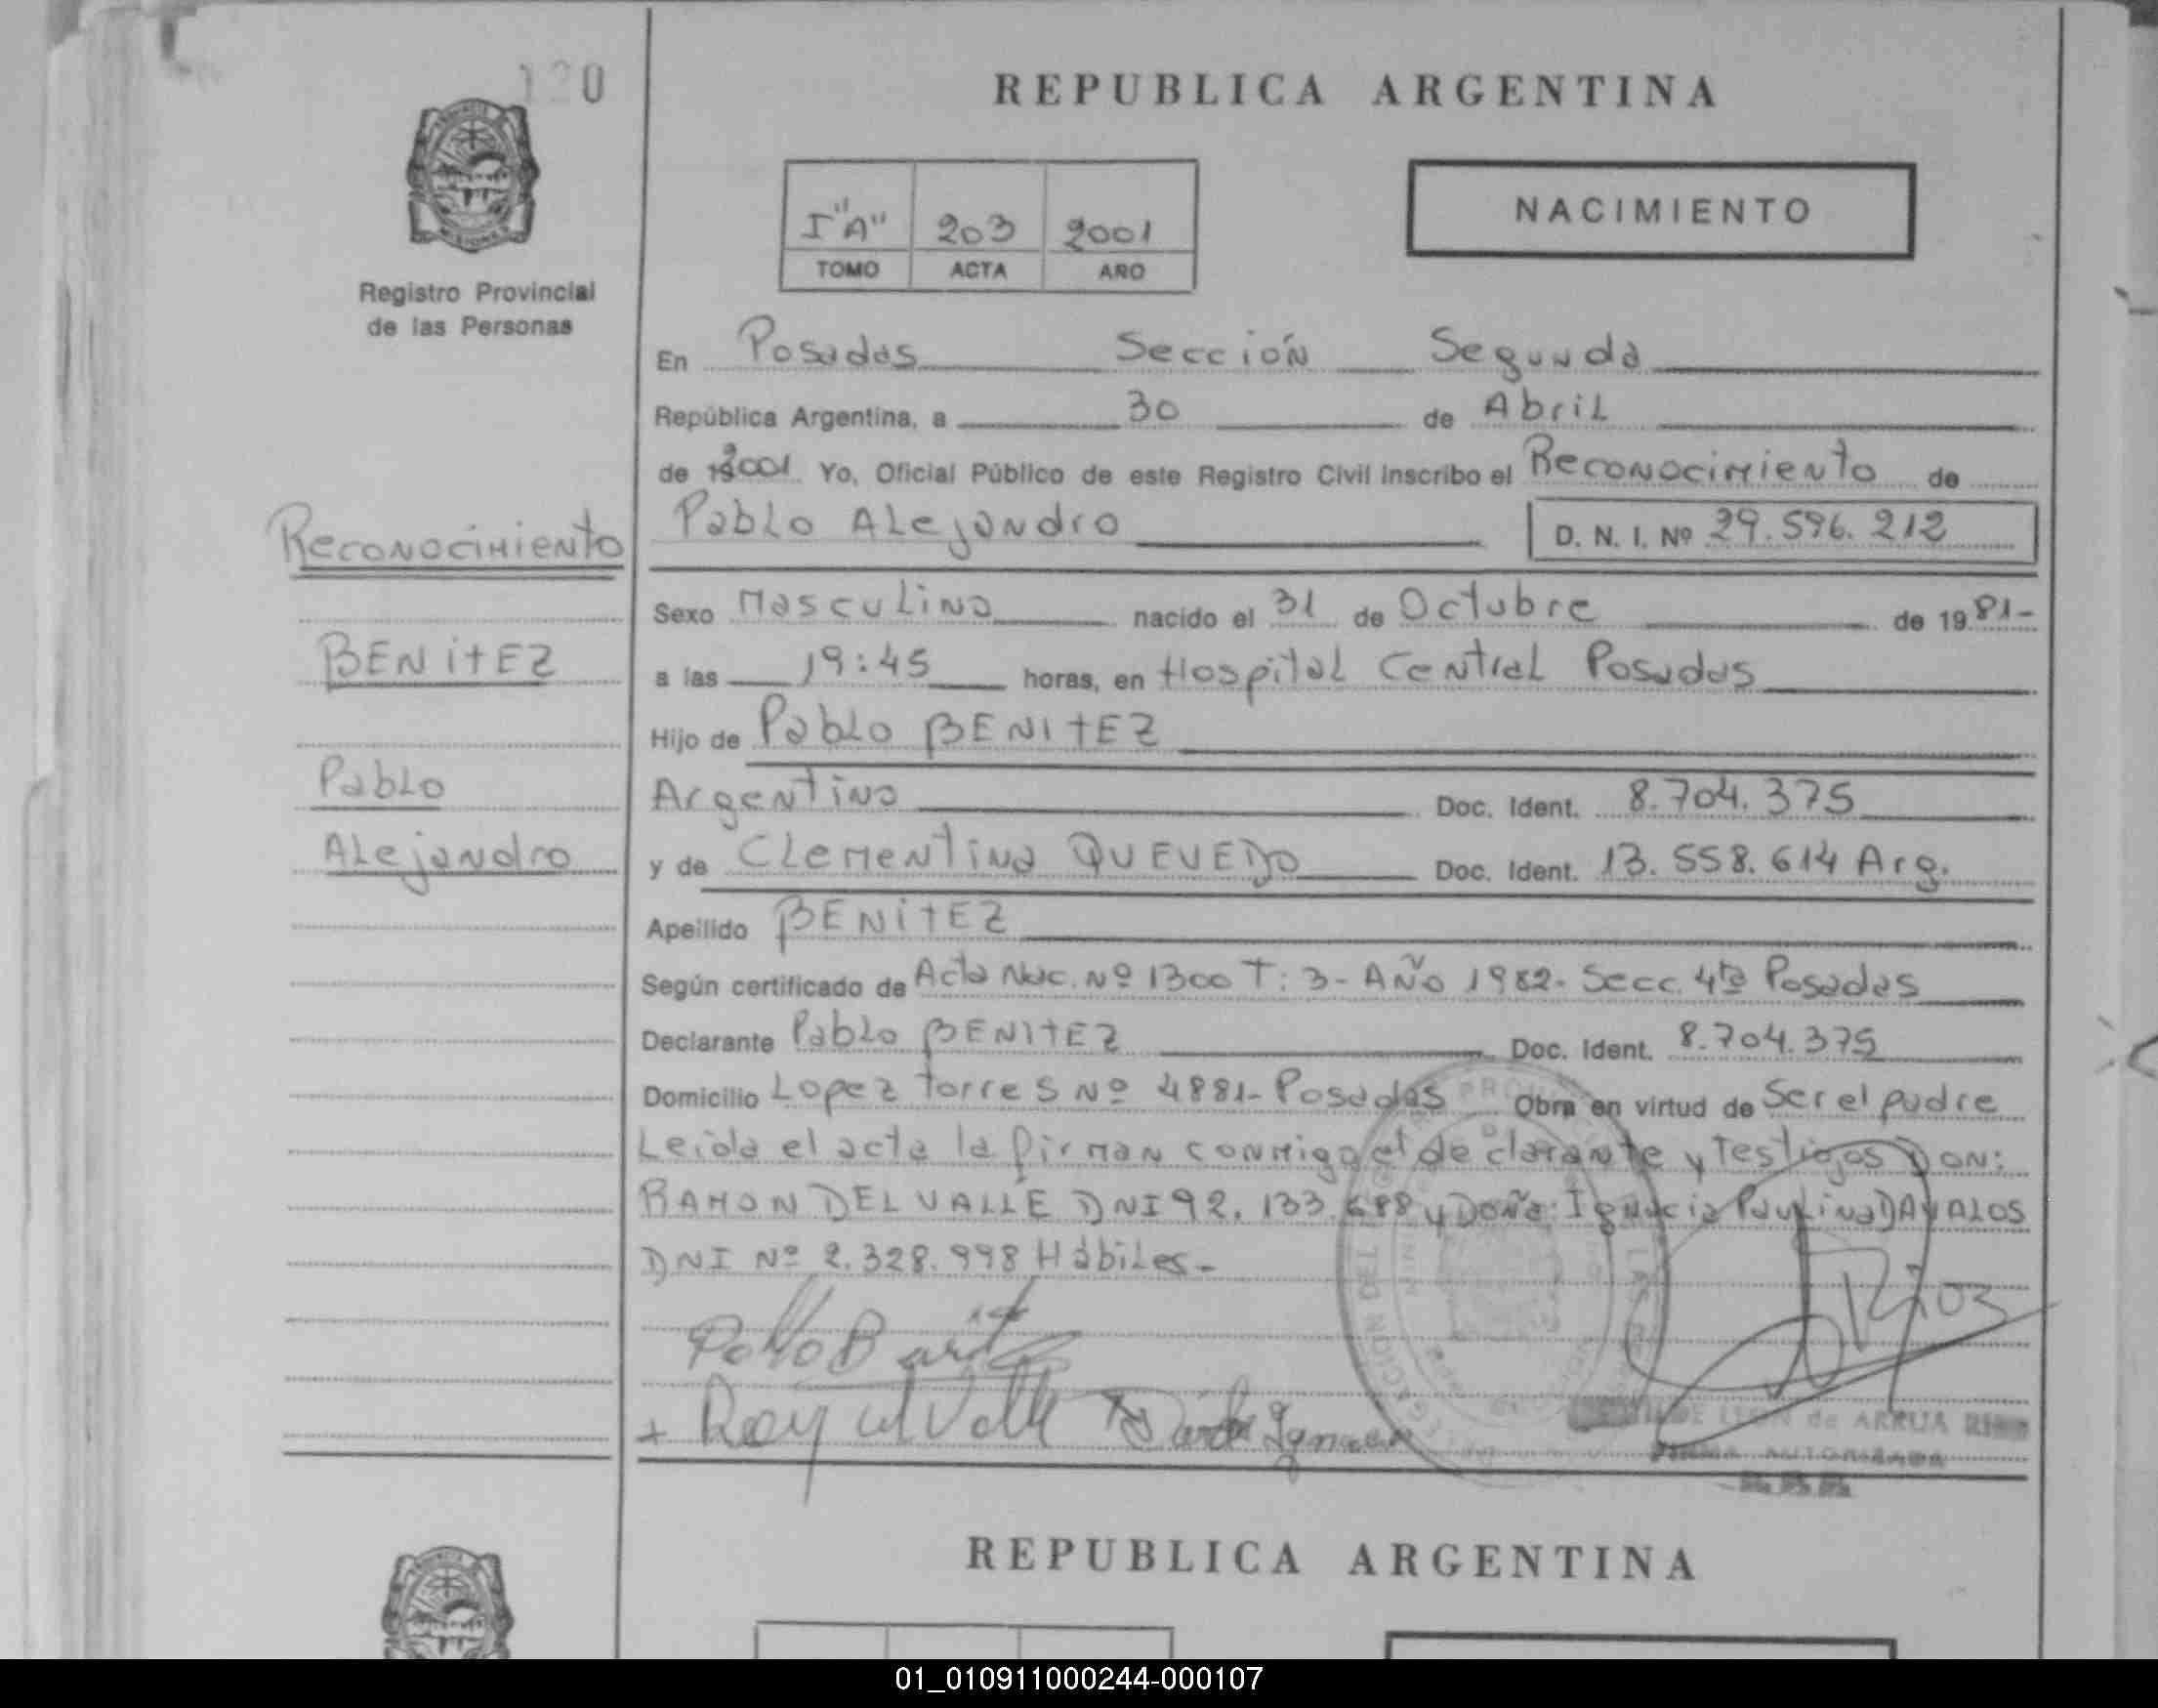 120
REPUBLICA ARGENTINA
I "A" 203 2001
TOMO ACTA AÑO
NACIMIENTO
Registro Provincial
de las Personas
En Posadas Sección Segunda
República Argentina, a 30 de Abril
de 2001 Yo, Oficial Público de este Registro Civil inscribo el Reconocimiento de
Pablo Alejandro D. N. I. Nº 29.596.212
Reconocimiento
Sexo Masculino nacido el 31 de Octubre de 1981-
BENITEZ
a las 19:45 horas, en Hospital Central Posadas
Hijo de Pablo BENITEZ
Pablo
Argentino Doc. Ident. 8.704.375
Alejandro
y de Clementina QUEVEDO Doc. Ident. 13.558.614 Arg.
Apellido BENITEZ
Según certificado de Acta Nac. Nº 1300 T: 3- Año 1982- Secc. 4ta Posadas
Declarante Pablo BENITEZ Doc. Ident. 8.704.375
Domicilio Lopez Torres Nº 4881- Posadas Obra en virtud de Ser el padre
Leída el acta la firman conmigo el declarante y testigos DON:
RAMON DEL VALLE DNI 92.133.688 y Doña: Ignacia Paulina DAVALOS
DNI Nº 2.328.998 Hábiles-
de ARRUA
FIRMA AUTORIZADA
REPUBLICA ARGENTINA
01_010911000244-000107